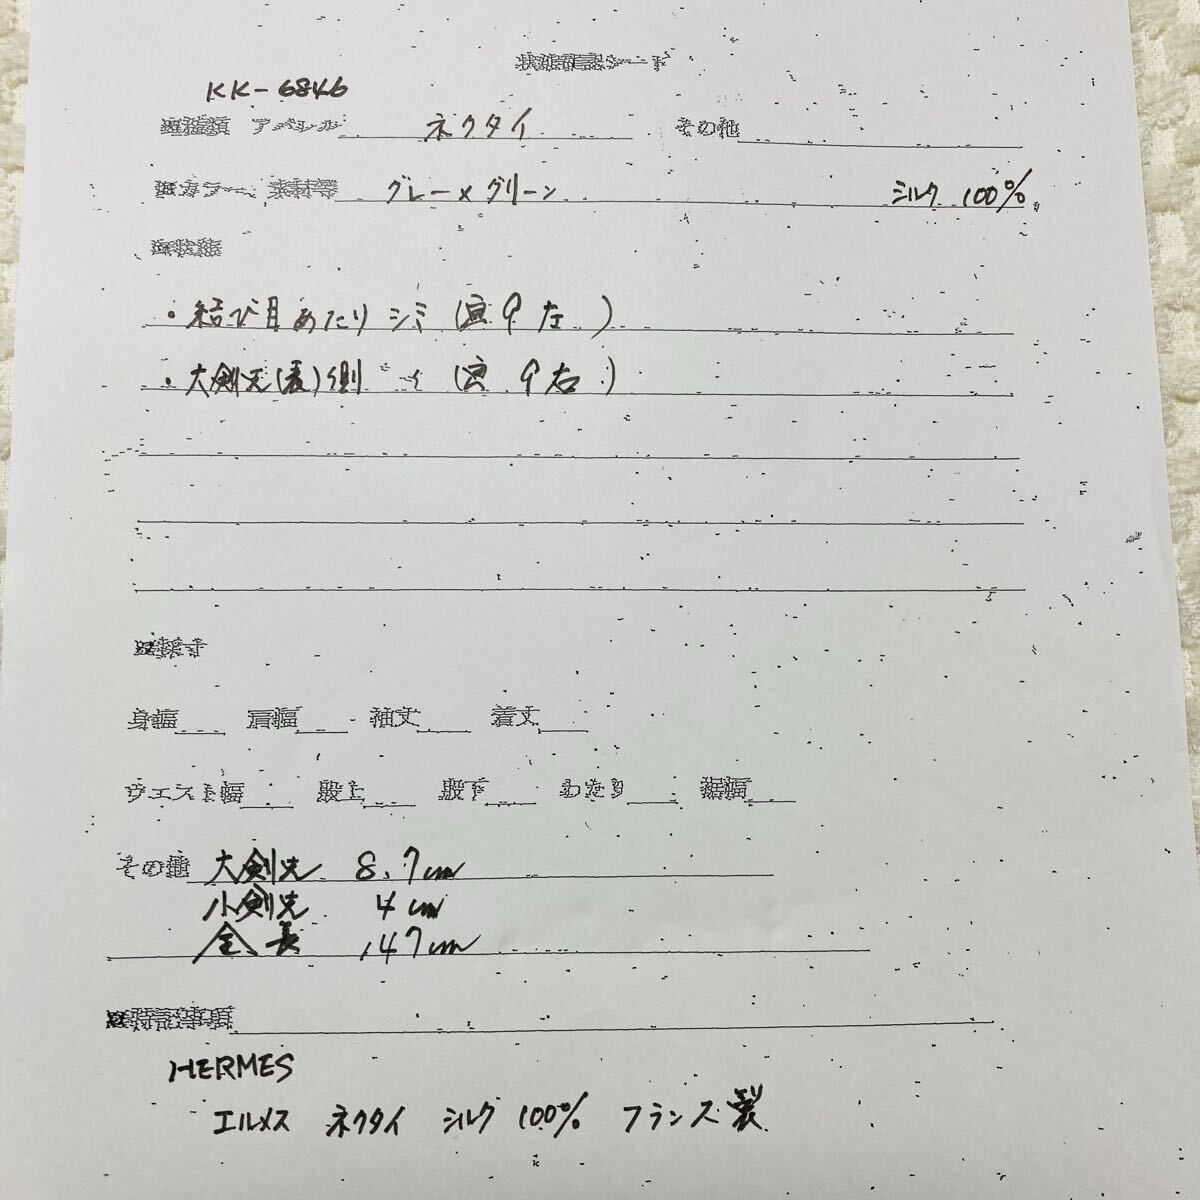 状態確認シート
KK-6846
アパレル ネクタイ その他
カラー、素材等 グレー×グリーン シルク 100%
・結び目あたり シミ (写9左)
・大剣先(表)側 〃 (写9右)
身幅 肩幅 袖丈 着丈
ウエスト幅 股上 股下 わたり 裾幅
その他 大剣先 8.7cm
小剣先 4cm
全長 147cm
特記事項
HERMES
エルメス ネクタイ シルク 100% フランス製